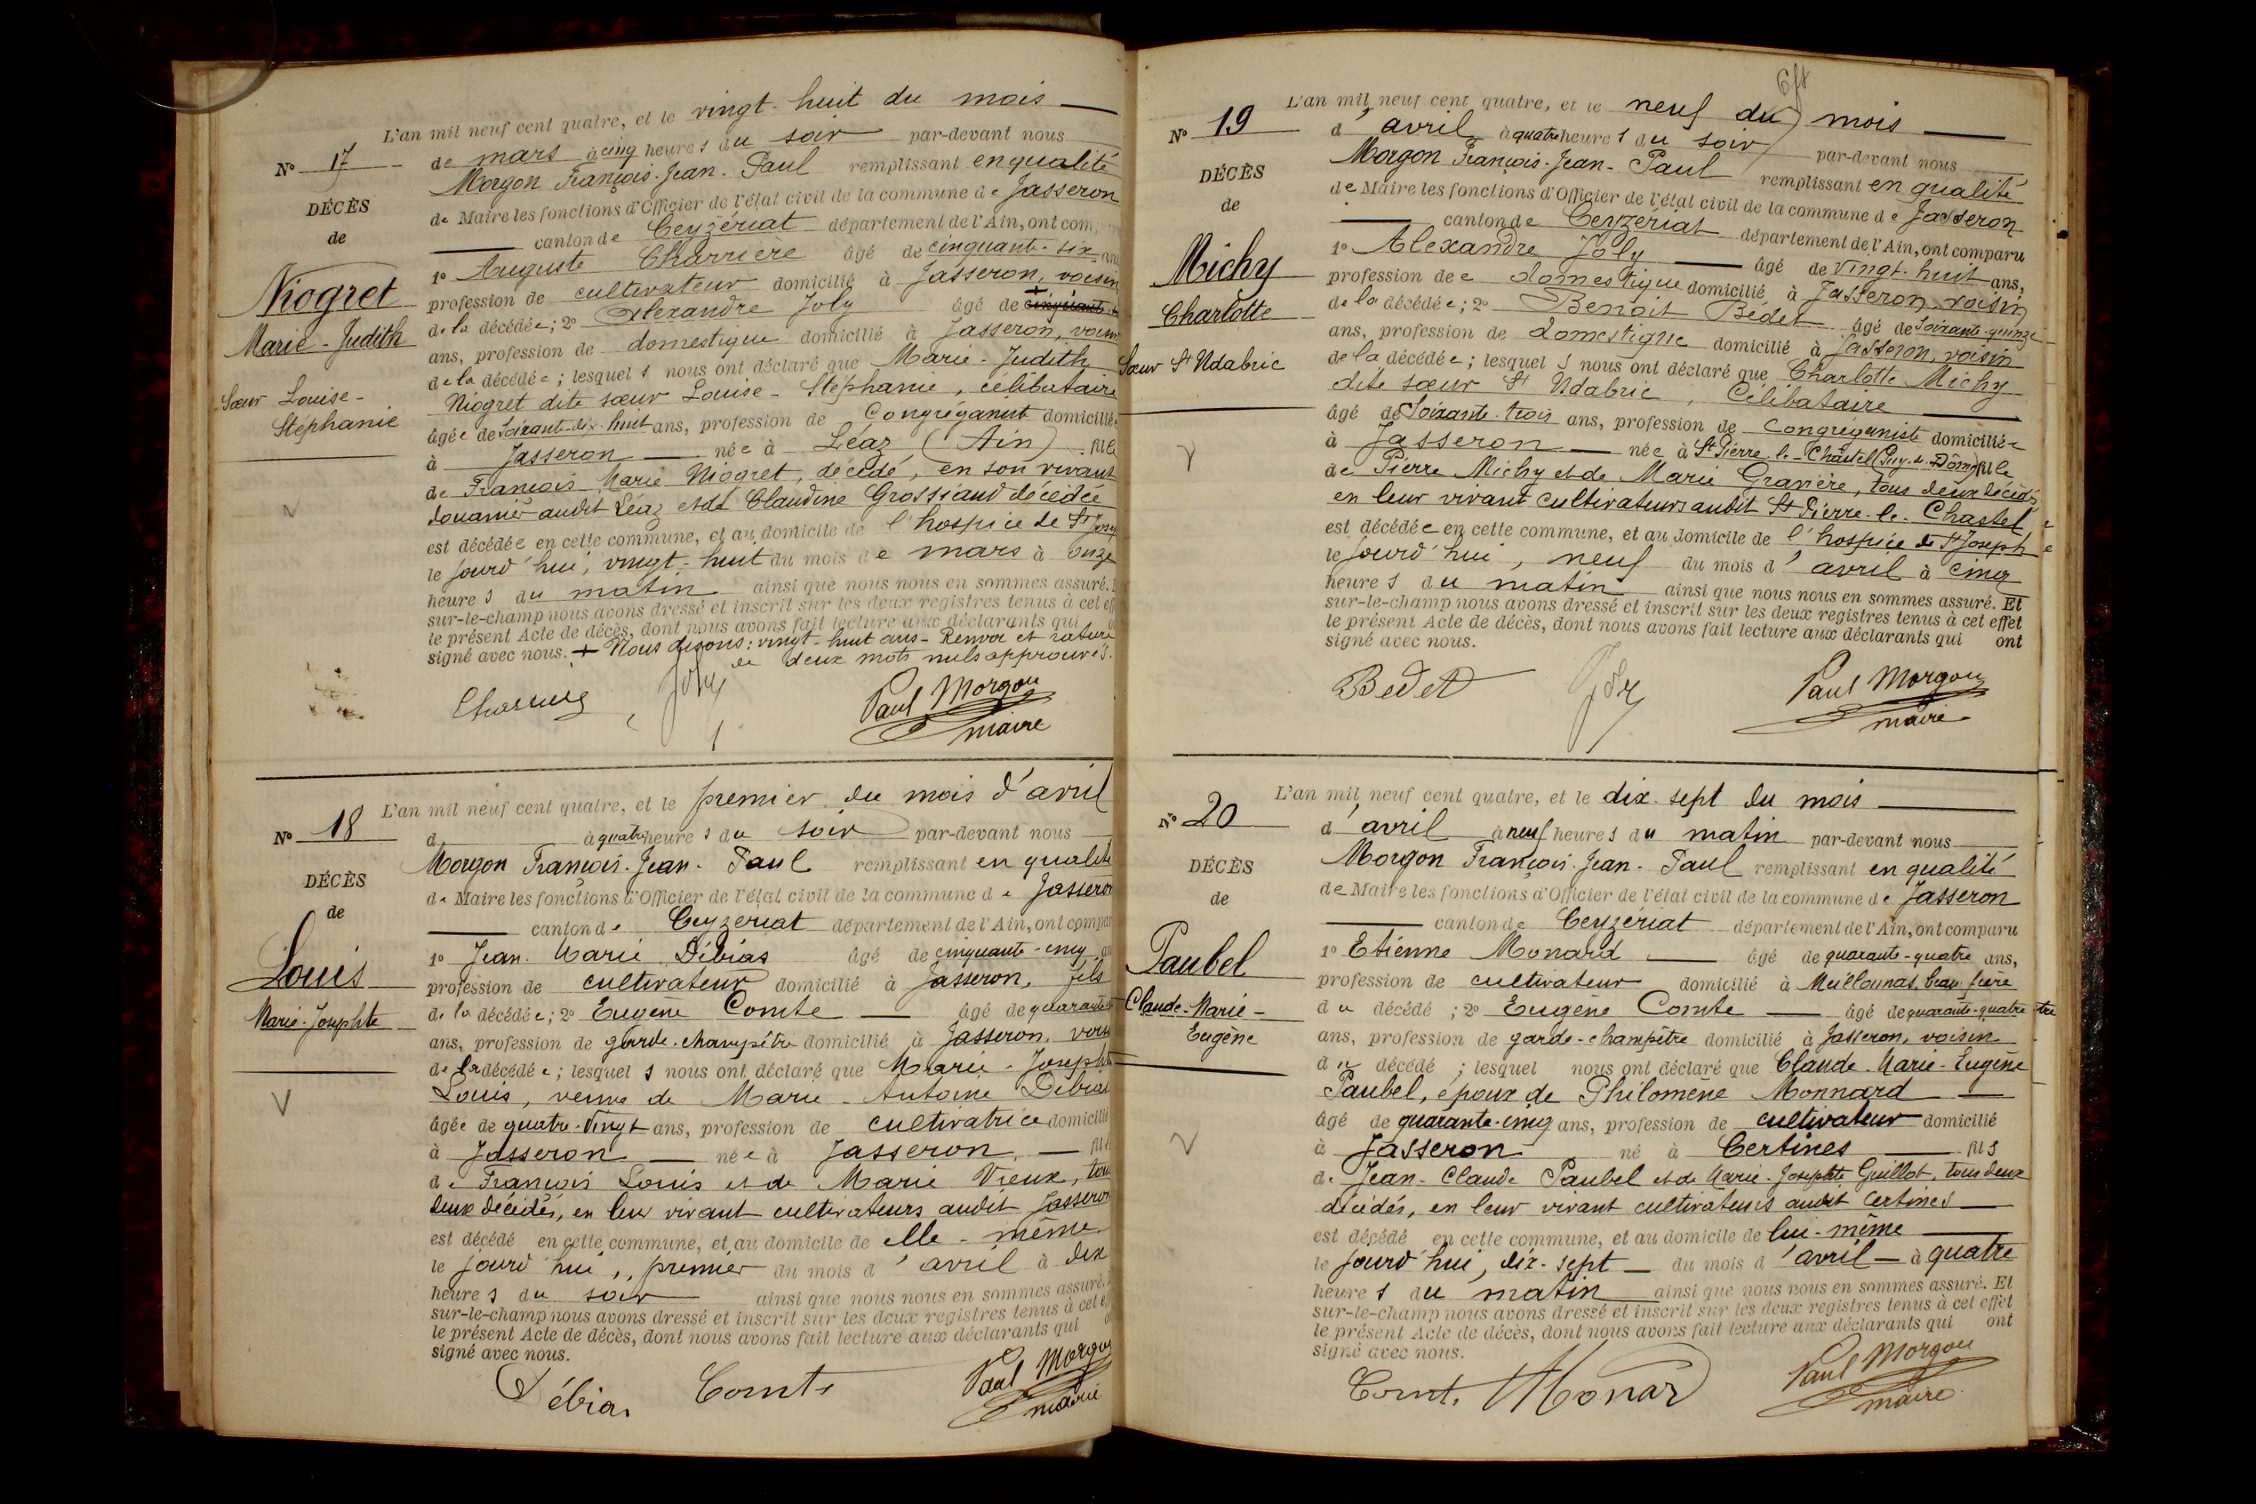 L'an mil neuf cent quatre, et le vingt-huit du mois
N° 17
de mars à cinq heures du soir par-devant nous
Morgon François-Jean-Paul remplissant en qualité
DÉCÈS
de Maire les fonctions d'Officier de l'état civil de la commune de Jasseron
de
canton de Ceyzériat département de l'Ain, ont com
1° Auguste Charrière âgé de cinquante-six ans
Niogret
profession de cultivateur domicilié à Jasseron, voisin
de la décédée; 2° Alexandre Joly + âgé de cinquante
Marie-Judith
ans, profession de domestique domicilié à Jasseron, voisin
de la décédée; lesquels nous ont déclaré que Marie-Judith
Sœur Louise-
Stéphanie
Niogret dite sœur Louise-Stéphanie, célibataire
âgée de soixante-dix-huit ans, profession de Congréganist domiciliée
à Jasseron née à Léaz (Ain) fille
de François Marie Niogret, décédé, en son vivant
douanier audit Léaz et de Claudine Grossiaud décédée
est décédée en cette commune, et au domicile de l'hospice de St Josep
le jourd'hui, vingt-huit du mois de mars à onze
heures du matin ainsi que nous nous en sommes assuré.
sur-le-champ nous avons dressé et inscrit sur les deux registres tenus à cet eff
le présent Acte de décès, dont nous avons fait lecture aux déclarants qui
signé avec nous. + Nous disons: vingt-huit ans - Renvoi et rature
de deux mots nuls approuvés.
Joly
Paul Morgon
maire
L'an mil neuf cent quatre, et le premier du mois d'avril
N° 18
d à quatre heures du soir par-devant nous
Morgon François-Jean-Paul remplissant en qualité
DÉCÈS
de Maire les fonctions d'Officier de l'état civil de la commune de Jasseron
de
canton de Ceyzeriat département de l'Ain, ont compar
1° Jean-Marie Débias âgé de cinquante-cinq an
Louis
profession de cultivateur domicilié à Jasseron, fils
Marie-Josephte
de la décédée; 2° Eugène Comte âgé de quarante
ans, profession de garde-champêtre domicilié à Jasseron, voisin
de la décédée; lesquels nous ont déclaré que Marie-Josephte
Louis, veuve de Marie-Antoine Débias
âgée de quatre-vingt ans, profession de cultivatrice domicilié
à Jasseron née à Jasseron, fil
de François Louis et de Marie Vieux, tous
deux décédés, en leur vivant cultivateurs audit Jasseron
est décédé en cette commune, et au domicile de elle-même
le jourd'hui, premier du mois d'avril à dix
heures du soir ainsi que nous nous en sommes assuré.
sur-le-champ nous avons dressé et inscrit sur les deux registres tenus à cet e
le présent Acte de décès, dont nous avons fait lecture aux déclarants qui
signé avec nous.
Débias Comte Paul Morgon
maire
L'an mil neuf cent quatre, et le neuf du mois
N° 19
d'avril à quatre heures du soir par-devant nous
Morgon François-Jean-Paul remplissant en qualité
DÉCÈS
de Maire les fonctions d'Officier de l'état civil de la commune de Jasseron
de
canton de Ceyzeriat département de l'Ain, ont comparu
1° Alexandre Joly âgé de vingt-huit ans,
Michy
profession de e domestique domicilié à Jasseron, voisin
Charlotte
de la décédée; 2° Benoit Bédet âgé de soixante-quinze
ans, profession de domestique domicilié à Jasseron, voisin
Sœur St Ndabric
de la décédée; lesquels nous ont déclaré que Charlotte Michy
dite sœur St Ndabric, Célibataire
âgé de soixante-trois ans, profession de Congréganiste domiciliée
à Jasseron née à St Pierre-le-Chastel (Puy-de-Dôme) fille
de Pierre Michy et de Marie Gravière, tous deux décédés
en leur vivant cultivateurs audit St Pierre-le-Chastel
est décédée en cette commune, et au domicile de l'hospice de St Joseph
le jourd'hui, neuf du mois d'avril à cinq
heures du matin ainsi que nous nous en sommes assuré. Et
sur-le-champ nous avons dressé et inscrit sur les deux registres tenus à cet effet
le présent Acte de décès, dont nous avons fait lecture aux déclarants qui ont
signé avec nous.
Bedet Joly Paul Morgon
maire
L'an mil neuf cent quatre, et le dix-sept du mois
N° 20
d'avril à neuf heures du matin par-devant nous
Morgon François-Jean-Paul remplissant en qualité
DÉCÈS
de Maire les fonctions d'Officier de l'état civil de la commune de Jasseron
de
canton de Ceyzeriat département de l'Ain, ont comparu
1° Etienne Monard âgé de quarante-quatre ans,
Paubel
profession de cultivateur domicilié à Meillonnas, beau-frère
Claude-Marie-
Eugène
du décédé; 2° Eugène Comte âgé de quarante-quatre
ans, profession de garde-champêtre domicilié à Jasseron, voisin
du décédé; lesquel nous ont déclaré que Claude-Marie-Eugène
Paubel, époux de Philomène Monnard
âgé de quarante-cinq ans, profession de cultivateur domicilié
à Jasseron né à Certines fils
de Jean-Claude Paubel et de Marie-Josephte Guillot, tous deux
décédés, en leur vivant cultivateurs audit Certines
est décédé en cette commune, et au domicile de lui-même
le jourd'hui, dix-sept du mois d'avril à quatre
heures du matin ainsi que nous nous en sommes assuré. Et
sur-le-champ nous avons dressé et inscrit sur les deux registres tenus à cet effet
le présent Acte de décès, dont nous avons fait lecture aux déclarants qui ont
signé avec nous.
Comte Monard Paul Morgon
maire